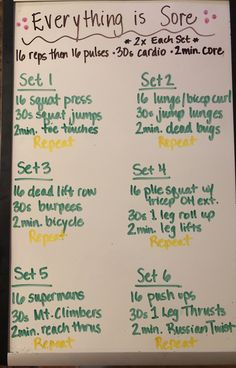 Everything is Sore
* 2x Each Set *
16 reps then 16 pulses • 30s cardio • 2min. core
Set 1
16 squat press
30s squat jumps
2min. toe touches
Repeat
Set 2
16 lunge/bicep curl
30s jump lunges
2min. dead bugs
Repeat
Set 3
16 dead lift row
30s burpees
2min. bicycle
Repeat
Set 4
16 plie squat w/
tricep OH ext.
30s 1 leg roll up
2min. leg lifts
Repeat
Set 5
16 supermans
30s Mt. Climbers
2min. reach thrus
Repeat
Set 6
16 push ups
30s 1 Leg Thrusts
2min. Russian Twist
Repeat